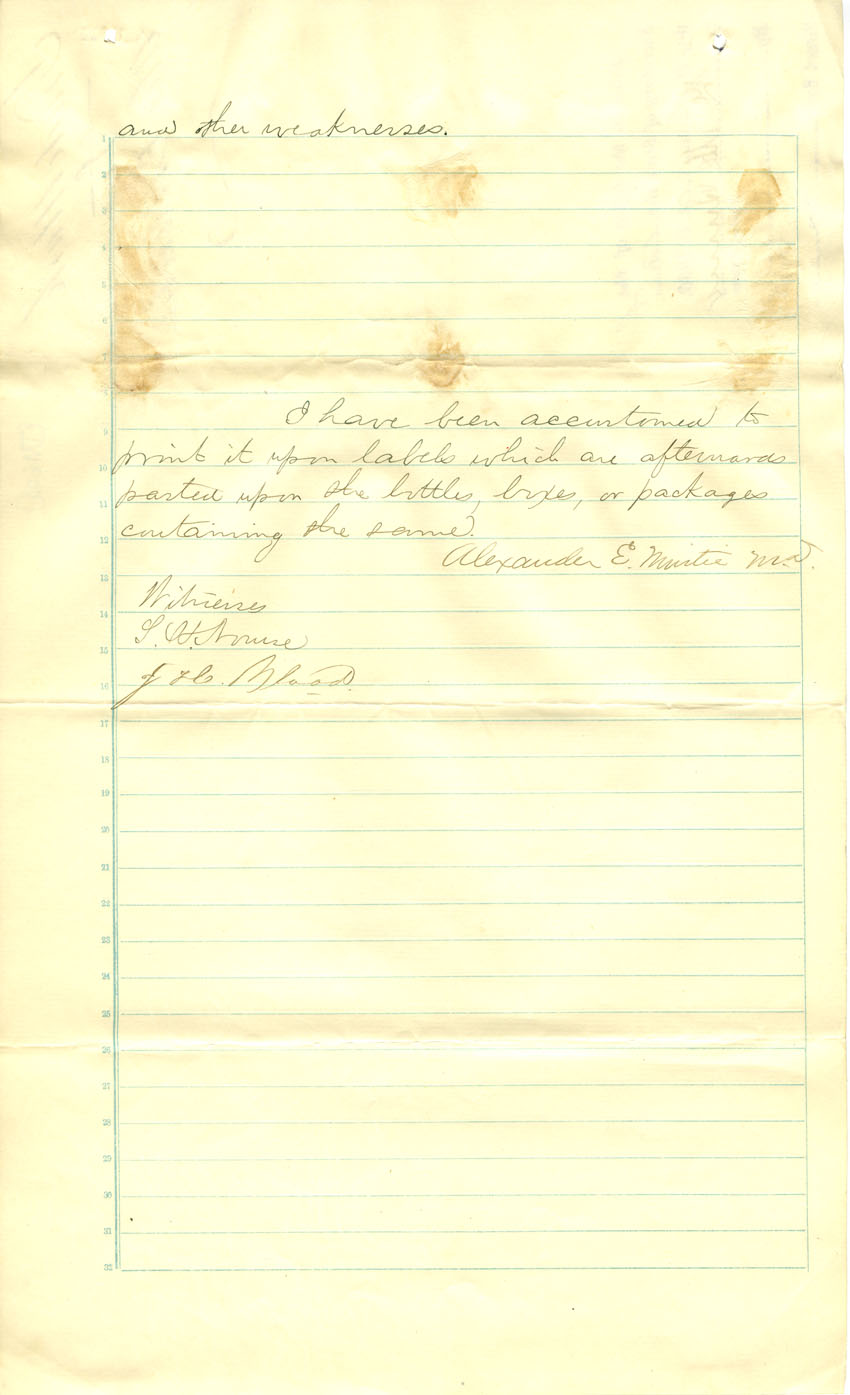 and other weaknesses.
I have been accustomed to
print it upon labels which are afterwards
pasted upon the bottles, boxes, or packages
containing the same.
Alexander E. Mintie M.D.
Witnesses
S. H. Nourse
J. H. Blood.
1
2
3
4
5
6
7
8
9
10
11
12
13
14
15
16
17
18
19
20
21
22
23
24
25
26
27
28
29
30
31
32